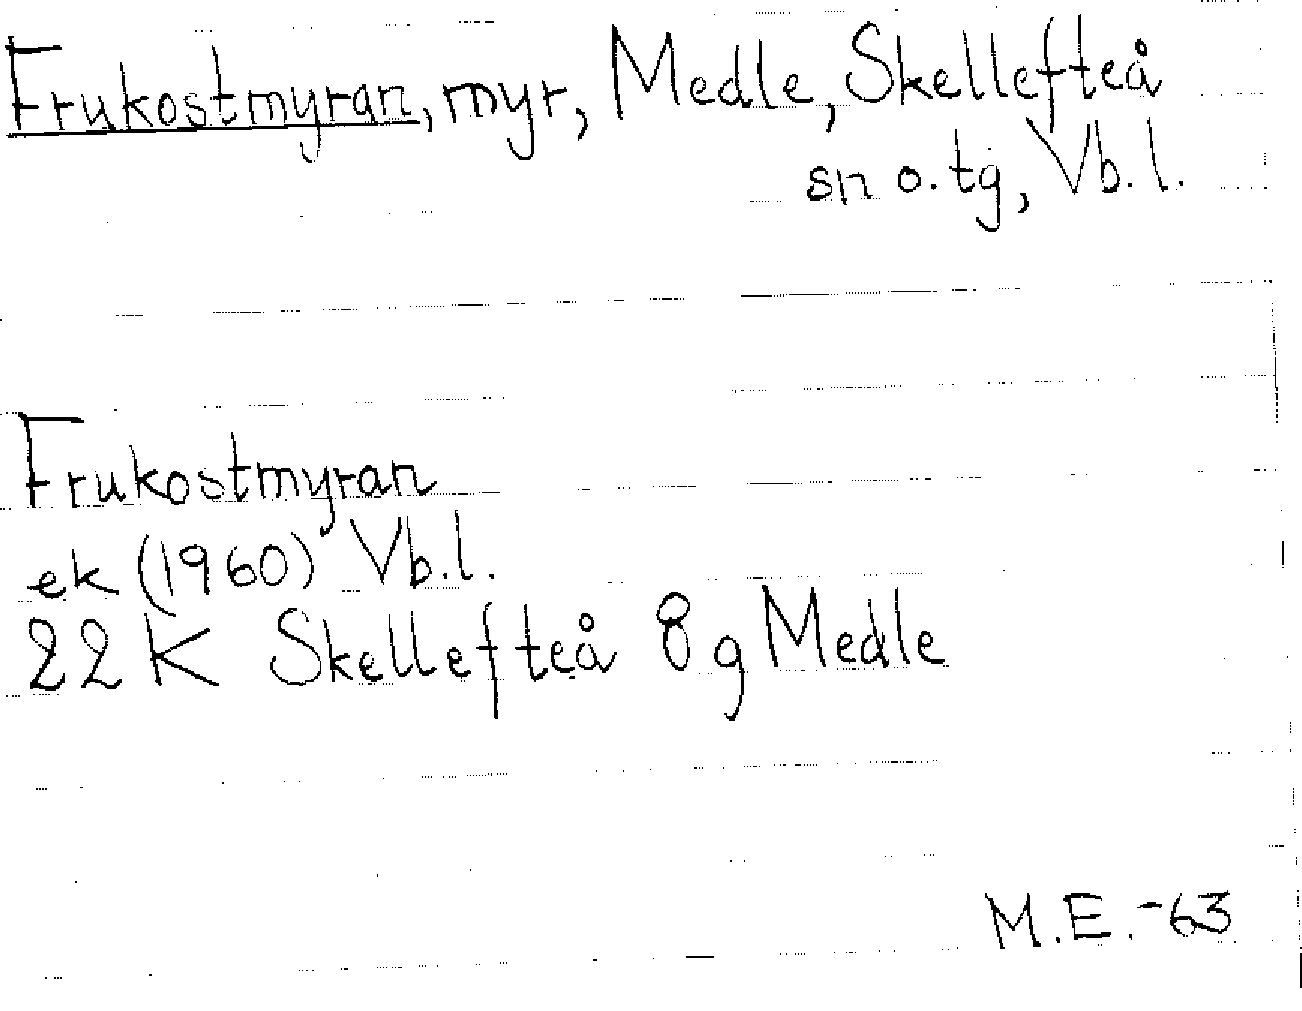 Frukostmyran, myr, Medle, Skellefteå
sn o. tg, Vb. l.
Frukostmyran
ek (1960) Vb. l.
22K Skellefteå 8g Medle
M.E. -63